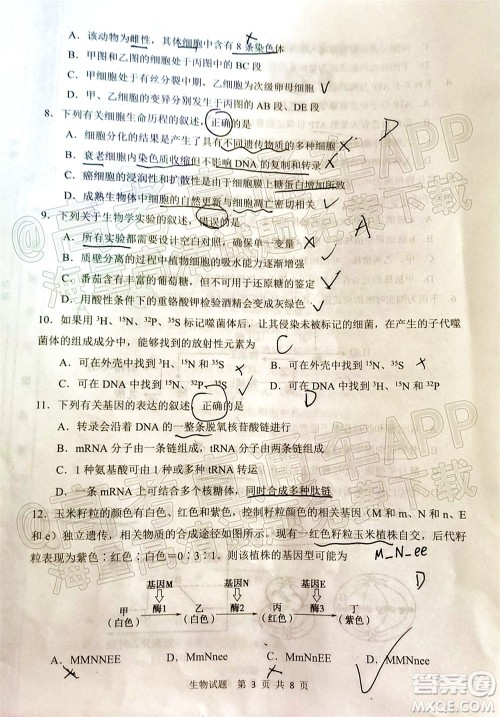 A、该动物为雌性，其体细胞中含有 8 条染色体
B、甲图和乙图的细胞处于丙图中的 BC 段
C、甲、乙细胞处于有丝分裂中期、次级卵母细胞
D、甲、乙细胞的变异分别发生与丙图的 AB 段、DE 段
8、下列有关细胞生命历程的叙述，正确的是
D
A、细胞分化的结果是产生了具有不同遗传物质的多种细胞
B、衰老细胞内染色质收缩但不影响 DNA 的复制和转录
C、癌细胞的浸润性和扩散性是由于细胞膜上糖蛋白增加所致
D、成熟生物体中细胞的自然更新与细胞凋亡密切相关
9、下列关于生物学实验的叙述，错误的是
A
A、所有实验都需要设计空白对照，确保单一变量
B、质壁分离的过程中植物细胞的吸水能力逐渐增强
C、番茄含有丰富的葡萄糖，但不能用于还原糖的鉴定
D、用酸性条件下的重铬酸钾检验酒精会变成灰绿色
10、如果用 ³H、¹⁵N、³²P、³⁵S 标记噬菌体后，让其侵染未被标记的细菌，在产生的子代噬
菌体的组成成分中，能够找到的放射性元素为
C
A、可在外壳中找到 ³H、¹⁵N 和 ³⁵S
B、可在外壳中找到 ³H、¹⁵N 和 ³²P
C、可在 DNA 中找到 ³H、¹⁵N 和 ³²P
D、可在 DNA 中找到 ³H、³⁵S 和 ³²P
11、下列有关基因的表达的叙述，正确的是
A、转录以 DNA 的一整条脱氧核苷酸链进行
B、mRNA 分子由一条链组成，tRNA 分子由两条链组成
C、1 种氨基酸可由 1 种或多种 tRNA 转运
D、一条 mRNA 上可结合多个核糖体，同时合成多种肽链
12、玉米籽粒的颜色有白色、红色和紫色，控制籽粒颜色的相关基因（M 和 m、N 和 n、E
和 e）独立遗传，相关物质的合成途径如图所示。现有一红色籽粒玉米植株自交，后代籽
粒表现为紫色∶红色∶白色＝0∶3∶1，则该植株的基因型可能为
M_N_ee
D
基因M 基因N 基因E
甲（白色） 酶1 乙（白色） 酶2 丙（红色） 酶3 丁（紫色）
A、MMNNEE B、MmNnee C、MmNnEE D、MMNnee
生物试题 第 3 页 共 8 页
答案圈
MXQE.COM